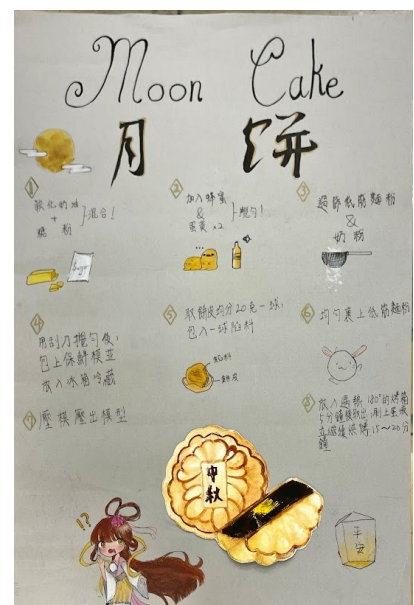 Moon Cake
月 餅
1
軟化的油
+
糖 粉
}混合!
Sugar
2
加入蜂蜜
&
蛋黃 x2
}攪勻!
3
過篩低筋麵粉
&
奶粉
4
用刮刀攪勻後,
包上保鮮模並
放入冰箱冷藏
5
取餅皮均分20克一球,
包入一球餡料
餡料
餅皮
6
均勻裹上低筋麵粉
7
壓模壓出模型
8
放入 180°的烤箱
5分鐘後取出,刷上蛋液
繼續烘烤15~20分
鐘
中秋
!?
平安